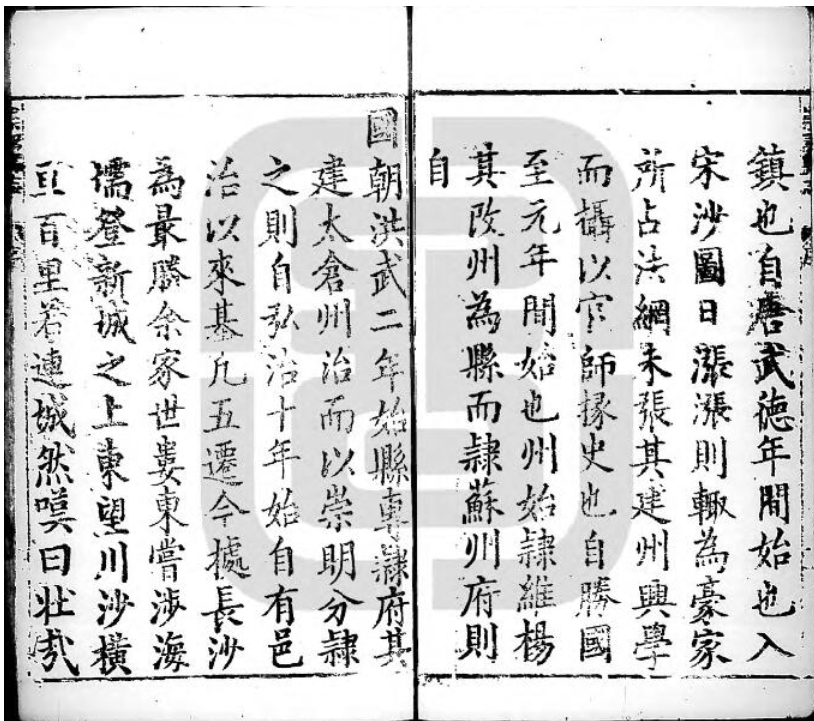 鎮也自唐武德年間始也入
宋沙圖日漲漲則輙為豪家
所占法網未張其建州興學
而攝以官師掾史也自勝國
至元年間始也州始隸維楊
其改州為縣而隸蘇州府則
自
國朝洪武二年始縣專隸府其
建太倉州治而以崇明分隸
之則自弘治十年始自有邑
治以來基凡五遷今據長沙
為最勝余家世婁東嘗涉海
壖登新城之上東望川沙橫
亘百里若連城然嘆曰壯哉